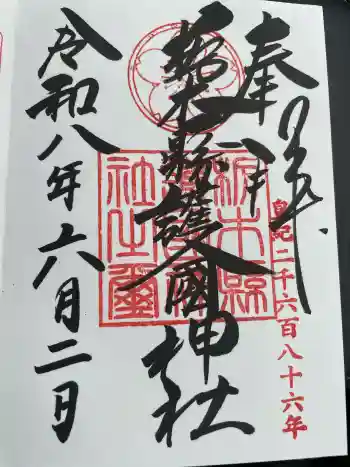 奉拝
皇紀二千六百八十六年
栃木縣護國神社
栃木縣護國神社之璽
令和八年六月二日